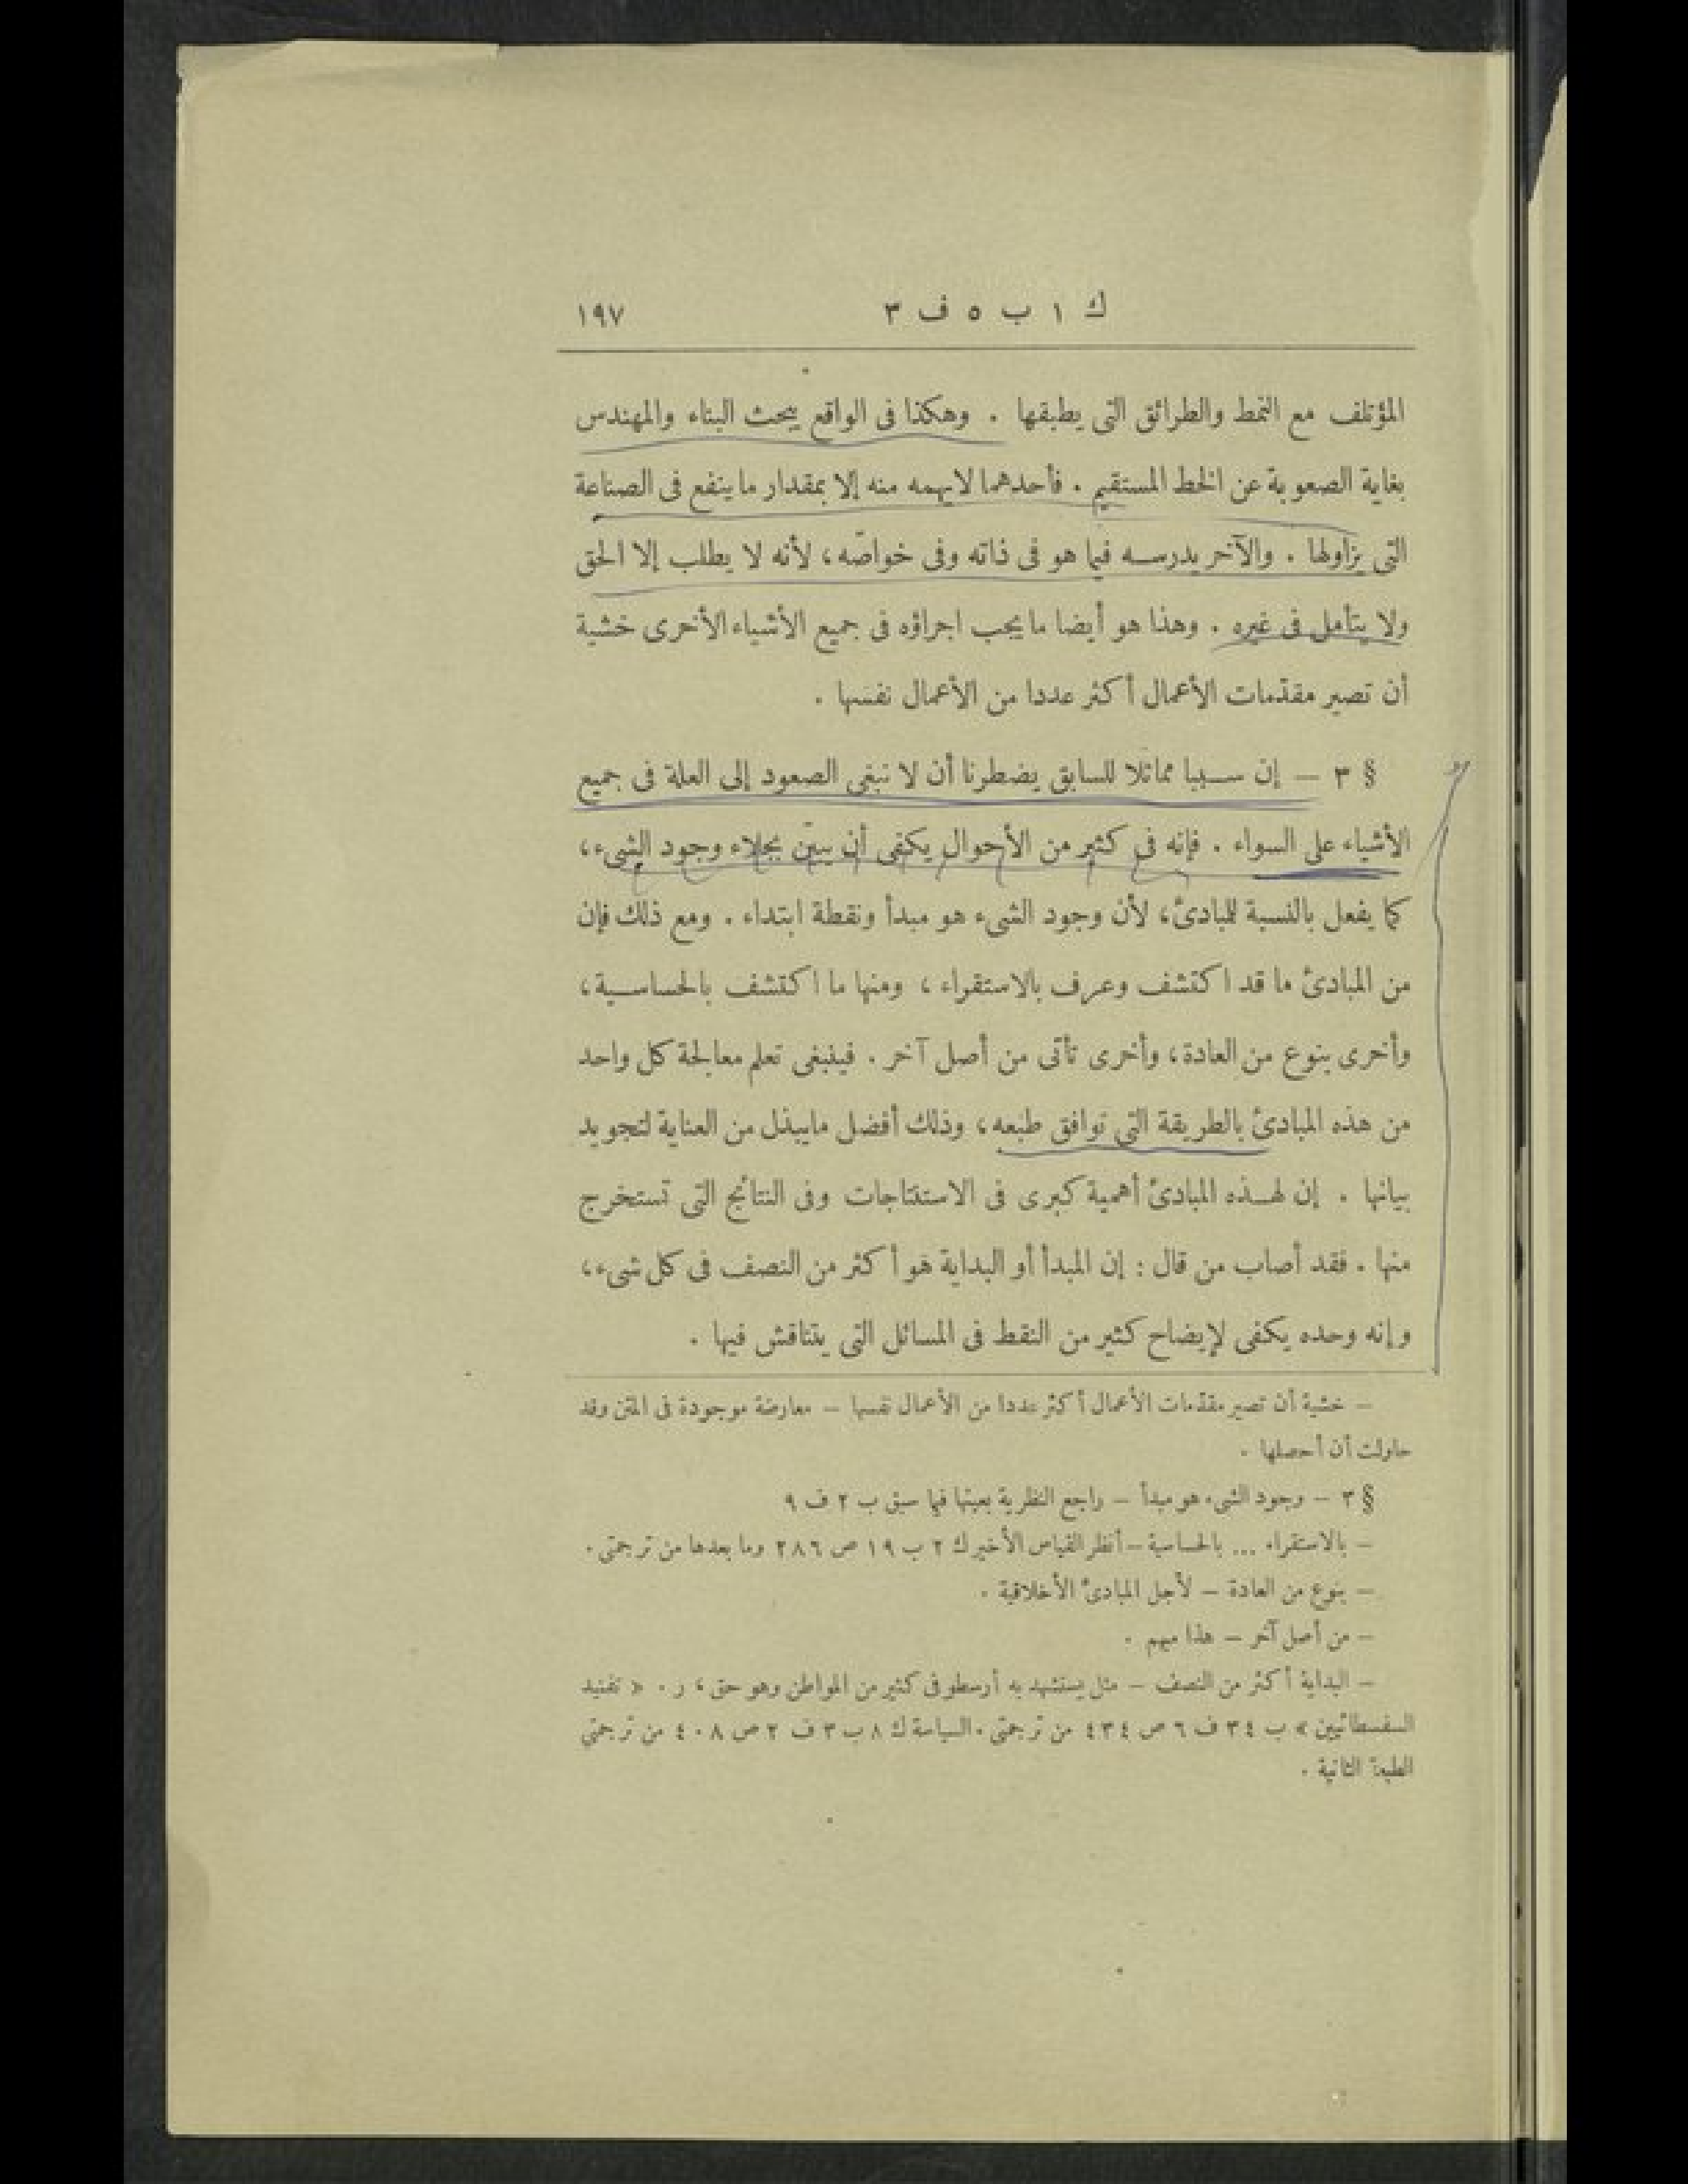 ك ١ ب ٥ ف ٣ ١٩٧
المؤتلف مع النمط والطرائق التى يطبقها . وهكذا فى الواقع يبحث البناء والمهندس
بغاية الصعوبة عن الخط المستقيم . فأحدهما لايهمه منه إلا بمقدار ماينفع فى الصناعة
التى يزاولها . والآخر يدرسه فيما هو فى ذاته وفى خواصّه، لأنه لا يطلب إلا الحق
ولا يتأمل فى غيره . وهذا هو أيضا ما يجب اجراؤه فى جميع الأشياء الأخرى خشية
أن تصير مقدّمات الأعمال أكثر عددا من الأعمال نفسها .
§ ٣ — إن سببا مماثلا للسابق يضطرنا أن لا نبغى الصعود إلى العلة فى جميع
الأشياء على السواء . فإنه فى كثير من الأحوال يكفى أن يبيّن بجلاء وجود الشىء،
كما يفعل بالنسبة للمبادئ، لأن وجود الشىء هو مبدأ ونقطة ابتداء . ومع ذلك فإن
من المبادئ ما قد اكتشف وعرف بالاستقراء، ومنها ما اكتشف بالحساسية،
وأخرى بنوع من العادة، وأخرى تأتى من أصل آخر . فينبغى تعلم معالجة كل واحد
من هذه المبادئ بالطريقة التى توافق طبعه، وذلك أفضل مايبذل من العناية لتجويد
بيانها . إن لهذه المبادئ أهمية كبرى فى الاستنتاجات وفى النتائج التى تستخرج
منها . فقد أصاب من قال : إن المبدأ أو البداية هو أكثر من النصف فى كل شىء،
وإنه وحده يكفى لإيضاح كثير من النقط فى المسائل التى يتناقش فيها .
— خشية أن تصير مقدّمات الأعمال أكثر عددا من الأعمال نفسها — معارضة موجودة فى المتن وقد
حاولت أن أحصلها .
§ ٣ — وجود الشىء هو مبدأ — راجع النظرية بعينها فيما سبق ب ٢ ف ٩
— بالاستقراء ... بالحساسية — أنظر القياس الأخير ك ٢ ب ١٩ ص ٢٨٦ وما بعدها من ترجمتى .
— بنوع من العادة — لأجل المبادئ الأخلاقية .
— من أصل آخر — هذا مبهم .
— البداية أكثر من النصف — مثل يستشهد به أرسطو فى كثير من المواطن وهو حق، ر . « تفنيد
السفسطائيين » ب ٣٤ ف ٦ ص ٤٣٤ من ترجمتى . السياسة ك ٨ ب ٣ ف ٢ ص ٤٠٨ من ترجمتى
الطبعة الثانية .